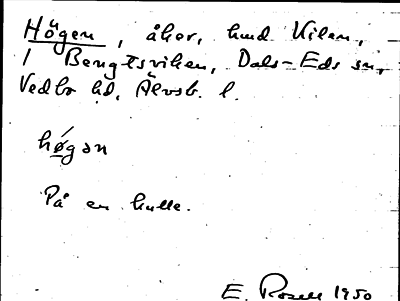 Högen, åker, hmd Kilen,
1 Bengtsviken, Dals-Eds sn,
Vedbo hd, Älvsb. l.
høgən
På en kulle.
E. Rosell 1950